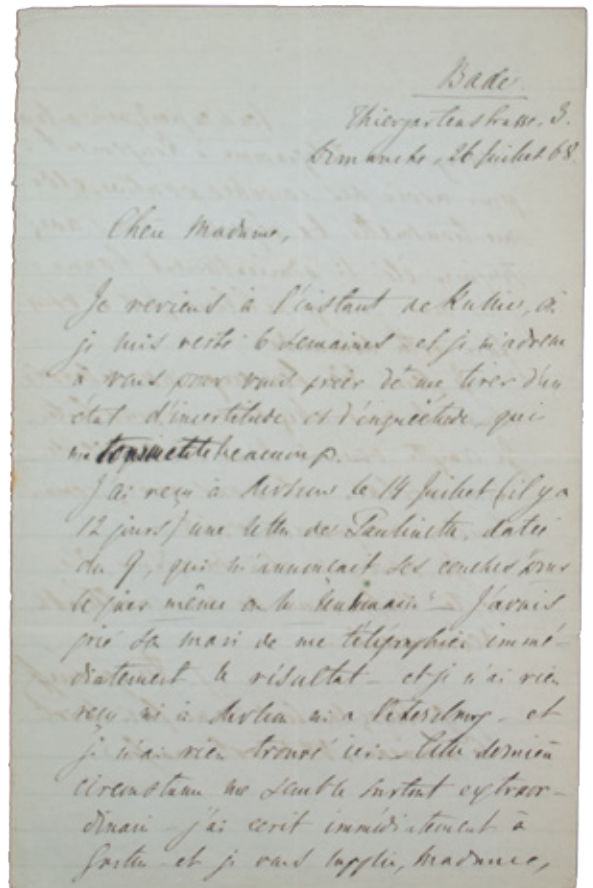 Bade.
Thiergartenstrasse. 3.
Dimanche, 26 Juillet 68.
Chère Madame,
Je reviens à l'instant de Russie, où
je suis resté 6 semaines et je m'adresse
à vous pour vous prier de me tirer d'un
état d'incertitude et d'inquiétude qui
me tourmente beaucoup.
J'ai reçu à le 14 Juillet (il y a
12 jours) une lettre de Paulinette, datée
du 9, qui m'annonçait ses couches pour
le jour même ou le lendemain. – J'avais
prié son mari de me télégraphier immé-
diatement le résultat – et je n'ai rien
reçu ni à ni à Pétersbourg – et
je n'ai rien trouvé ici. – Cette dernière
circonstance me semble surtout extraor-
dinaire – j'ai écrit immédiatement à
Gaston – et je vous supplie, Madame,